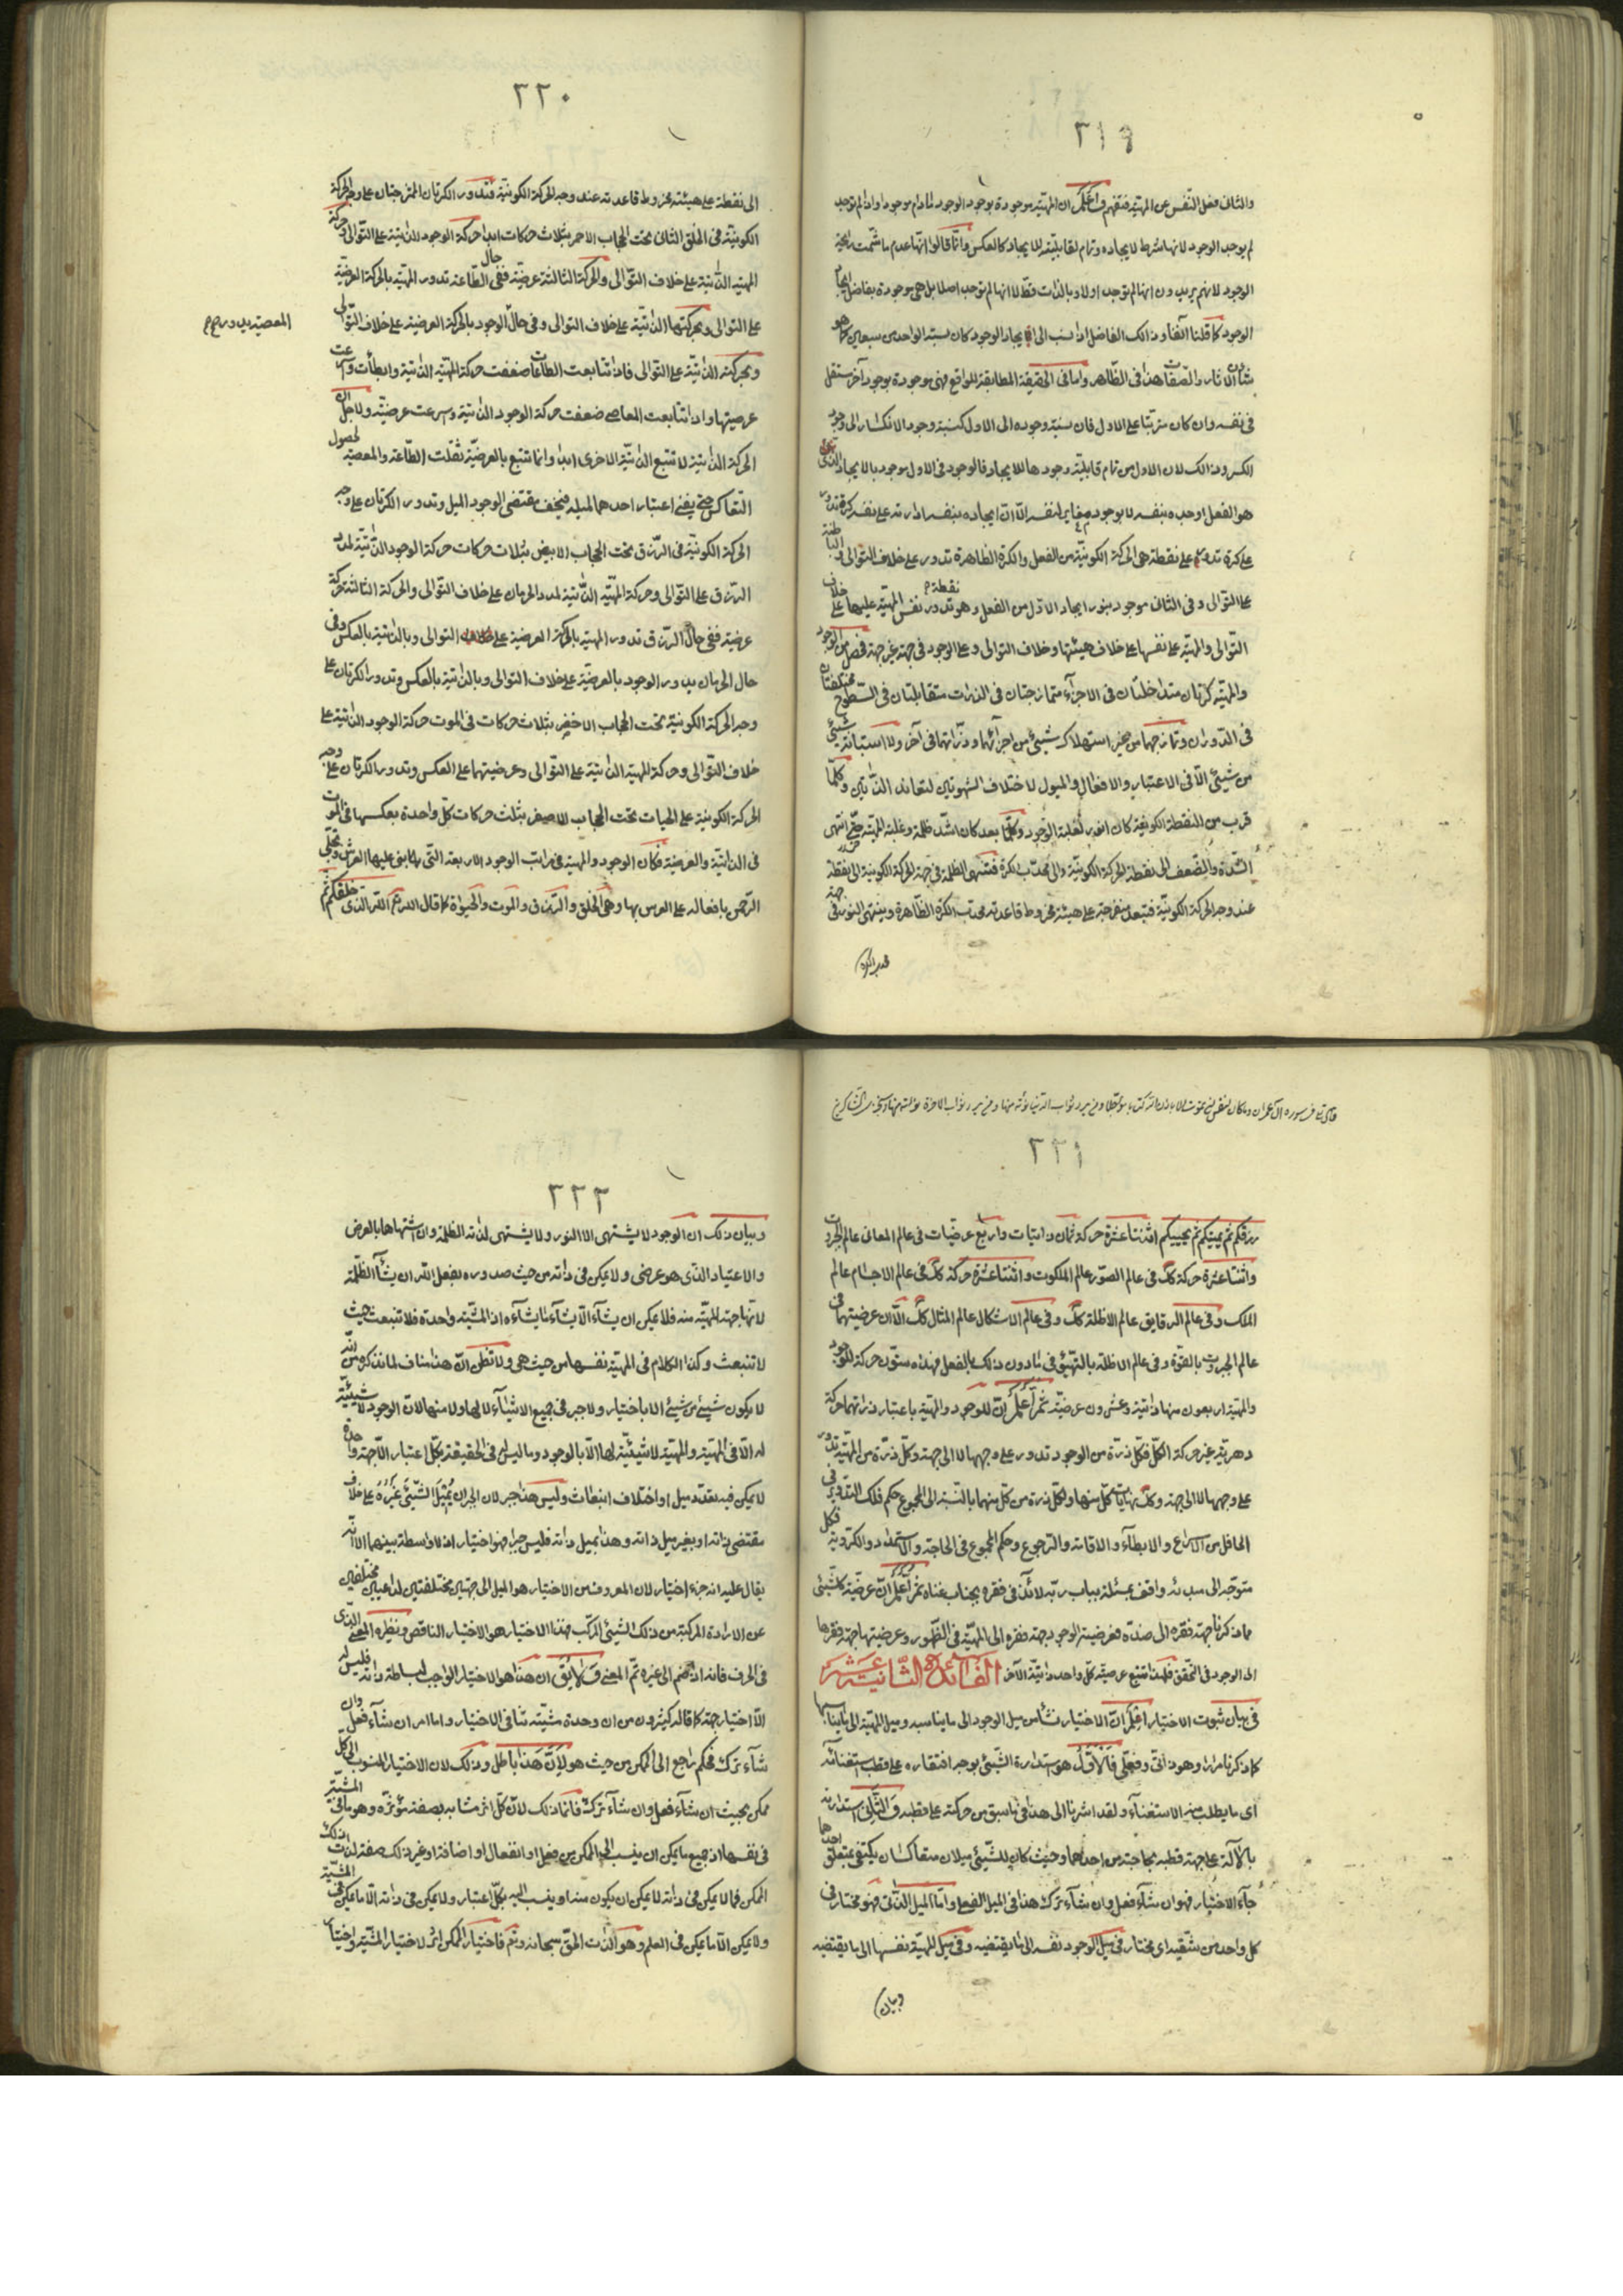 ٢١٩
والثانى فعل النفس عن المهيّة فتفهم فاعلم ان المهيّة موجودة بوجود الوجود مادام موجودا واذا لم يوجد
لم يوجد الوجود لانها شرط لايجاده وتمام لقابليّته للايجاد كالعكس وانما قالوا انها عدم ما شمّت رائحة
الوجود لانهم يريدون انها لم توجد اولا وبالذات فقط لا انها لم توجد اصلا بل هى موجودة بفاضل ايجاد
الوجود كما قلنا آنفا وذلك الفاضل اذا نسب الى ايجاد الوجود كان نسبة الواحد من سبعين كما هو
شأن الآثار والصفات هذا فى الظاهر واما فى الحقيقة المطابقة للواقع فهى موجودة بوجود آخر مستقل
فى نفسه وان كان مترتبا على الاول فان نسبة وجوده الى الاول كنسبة وجود الانكسار الى وجود
الكسر وذلك لان الاول من تمام قابليّة وجودها للايجاد فالوجود فى الاول موجود بالايجاد الذى
هو الفعل اوجده بنفسه لا بوجود مغاير لنفسه الا ان ايجاده بنفسه ادارته على نفسه كرة تدور
على كرة تدور على نقطة هى الحركة الكونيّة من الفعل والكرة الظاهرة تدور على خلاف التوالى والباطنة
على التوالى وفى الثانى موجود بنور ايجاد الاول من الفعل وهو نقطة تدور نفس المهيّة عليها على خلاف
التوالى والمهيّة على نفسها على خلاف هيئتها وخلاف التوالى وعلى الوجود فى جهة غير جهة فصل من الوجود
والمهيّة كرتان متداخلتان فى الاجزآء متمازجتان فى الذرات متقابلتان فى السطوح مختلفتان
فى الدوران وتمازجهما من غير استهلاك شيئ من اجزآئهما وذراتهما فى آخر ولا استبانة شيئ
من شيئ الا فى الاعتبار والافعال والميول لاختلاف الشهوتين لتعاند الذاتين وكلما
قرب من النقطة الكونيّة كان انور لغلبة الوجود وكلما بعد كان اشدّ ظلمة وغلبة المهيّة حتى انتهى
الشدّة والضعف الى نقطة الحركة الكونيّة والى محدّب الكرة فتنتهى الظلمة فى جهة الحركة الكونيّة الى نقطة
عند وجه الحركة الكونيّة فتبعد منفرجة على هيئة مخروط قاعدته محدب الكرة الظاهرة وينتهى النور فى جهة
٢٢٠
الى نقطة على هيئة مخروط قاعدته عند وجه الحركة الكونيّة فتدور الكرتان الممتزجتان على وجه الحركة
الكونيّة فى الخلق الثانى تحت الحجاب الاحمر بثلاث حركات ابدا حركة الوجود الذاتية على التوالى وحركة
المهيّة الذاتية على خلاف التوالى والحركة الثالثة عرضيّة ففى حال الطاعة تدور المهيّة بالحركة العرضيّة
على التوالى وبحركتها الذاتية على خلاف التوالى وفى حال المعصية يدور الوجود بالحركة العرضية على خلاف التوالى
وبحركته الذاتيّة على التوالى فاذا تتابعت الطاعات ضعفت حركة المهيّة الذاتيّة وابطأت واسرعت
عرضيتها واذا تتابعت المعاصى ضعفت حركة الوجود الذاتية واسرعت عرضيّته ولاجل ان
الحركة الذاتية لا تتبع الذاتيّة الاخرى ابدا وانما تتبع بالعرضيّة ثقلت الطاعة والمعصية لحصول
التعاكس حتى يفنى اعتبار احدهما لميله فيخف مقتضى الوجود الميل وتدور الكرتان على وجه
الحركة الكونيّة فى الرزق تحت الحجاب الابيض بثلاث حركات حركة الوجود الذاتية لمدد
الرزق على التوالى وحركة المهيّة الذاتية لمدد الحرمان على خلاف التوالى والحركة الثالثة حركة
عرضية ففى حال الرزق تدور المهية بالحركة العرضية على التوالى وبالذاتية بالعكس وفى
حال الحرمان يدور الوجود بالعرضيّة على خلاف التوالى وبالذاتية بالعكس وتدور الكرتان على
وجه الحركة الكونيّة تحت الحجاب الاخضر بثلاث حركات فى الموت حركة الوجود الذاتية على
خلاف التوالى وحركة المهية الذاتية على التوالى وعرضيتهما على العكس وتدور الكرتان على وجه
الحركة الكونية على الحيات تحت الحجاب الاصفر بثلث حركات كلّ واحدة بعكسها فى الموت
فى الذاتيّة والعرضية فكان الوجود والمهية فى مراتب الوجود الاربعة التى بها بنى عليها العرش وتجلّى
الرحمن بافعاله على العرش بها وهى الخلق والرزق والموت والحيوة كما قال الله تعم الله الذى خلقكم ثم
٢٢١
رزقكم ثم يميتكم ثم يحييكم اثنتا عشرة حركة ثمان ذاتيات واربع عرضيّات فى عالم المعانى عالم الجبروت
واثنتا عشرة حركة كك فى عالم الصوّر عالم الملكوت واثنتا عشرة حركة كك فى عالم الاجسام عالم
الملك وفى عالم الرقايق عالم الاظلة كك وفى عالم الاشكال عالم المثال كك الا ان عرضيتها فى
عالم الجبروت بالقوّة وفى عالم الاظلة بالتهيّؤ فى مادون ذلك بالفعل فهذه ستون حركة للوجود
والمهيّة اربعون منها ذاتية وعشرون عرضيّة ثم اعلم ان للوجود والمهية باعتبار ذراتهما حركة
دهرية غير حركة الكلّ فكل ذرّة من الوجود تدور على وجهها لا الى جهة وكلّ ذرّة من المهيّة تدور
على وجهها لا الى جهة وكك نهايات كلّ منها ولكل ذرة من كلّ منهما بالنسبة الى المجموع حكم فلك التدوير فى
الحافل من الاسراع والابطآء والاقامة والرجوع وحكم المجموع فى الحاجة والاستمداد والكروية فكل
متوجّه الى مبدئه واقف بمسئلته بباب ربّه لائذ فى فقره بجناب غناه ثم اعلم ان عرضيّة كل شيئ
مما ذكرنا جهة فقره الى ضدّه فعرضية الوجود جهة فقره الى المهيّة فى الظهور وعرضيتها جهة فقرها
الى الوجود فى التحقق فلهذا تتبع عرضيّة كلّ واحد ذاتيّة الآخر الفائدة الثانية عشر
فى بيان ثبوت الاختيار اعلم ان الاختيار نشأ من ميل الوجود الى ما يناسبه وميل المهيّة الى ما يناسبها
كما ذكرنا مرارا وهو ذاتى وفعلى فالاول هو استدارة الشيئ بوجه افتقاره على قطب استغنائه
اى ما يطلب منه الاستغنآء ولقد اشرنا الى هذا فى ما سبق من حركته على قطبه والثانى استدارته
بالآلة على جهة قطبه بحاجته من احدهما وحيث كان للشيئ ميلان متعاكسان يكتفى بمتعلق احدهما
جآء الاختيار فهو ان شآء فعل وان شآء ترك هذا فى الميل الفعلى واما الميل الذاتى فهو مختار فى
كل واحد من شقيه اى مختار فى ميل الوجود نفسه الى ما يقتضيه وفى ميل المهيّة نفسها الى ما يقتضيه
وبيان
٢٢٢
وبيان ذلك ان الوجود لا يشتهى الا النور ولا يشتهى لذاته الظلمة وان اشتهاها بالعرض
والاعتياد الذى هو عرضى ولا يمكن فى ذاته من حيث صدوره بفعل الله ان يشآء الظلمة
لانها جهة المهيّة منه فلا يمكن ان يشآء الا يشآء ما يشآءه اذ المشيّة واحدة فلا تنبعث حيث
لا تنبعث وكذا الكلام فى المهيّة نفسها من حيث هى ولا تظن ان هذا مناف لما نذكره من انه
لا يكون شيئ من شيئ الا باختيار ولا جبر فى جميع الاشيآء لا لها ولا منها لان الوجود لا شيئيّة
له الا فى المهيّة والمهيّة لا شيئيّة لها الا بالوجود وما ليس فى الحقيقة بكلّ اعتبار الا جهة واحدة
لا يمكن فيه تعدد ميل او اختلاف انبعاث وليس هذا جبر لان الجبر ان يُميل الشيئ غيرُه على خلاف
مقتضى ذاته او بغير ميل ذاته وهذا بميل ذاته فليس جبرا فهو اختيار اذ لا واسطة بينهما الا انه
يقال عليه انه جزء اختيار لان المعروف من الاختيار هو الميل الى جهتين مختلفتين لداعيين مختلفين
عن الارادة المركبة من ذلك الشيئ المركب فهذا الاختيار هو الاختيار الناقص ونظيره المعنى الذى
فى الحرف فانه اذا ضم الى غيره تمّ المعنى ولا يق ان هذا هو الاختيار الواجب لبساطة ذاته فليس له
الا اختيار جهة كما قاله كثيرون من ان وحدة مشيّته تنافى الاختيار واما امر ان شآء فعل وان
شآء ترك فحكم راجع الى الممكن من حيث هو لان هذا باطل وذلك لان الاختيار المنسوب الى كل
ممكن بحيث ان شآء فعل وان شآء ترك فانما ذلك لان كلّ اثر مشابه بصفة مؤثره وهو ما فى المشيّة
فى نفسها اذ جميع ما يمكن ان ينسب الى الممكن من فعل او انفعال او اضافة او غير ذلك صفة لذات
الممكن فما لا يمكن فى ذاته لا يمكن ان يكون منه او ينسب اليه بكلّ اعتبار ولا يمكن فى ذاته الا ما يمكن فى المشيّة
ولا يمكن الا ما يمكن فى العلم وهو الذات الحقّ سبحانه وتعم فاختيار الممكن اثر لاختيار المشيّة واختيار